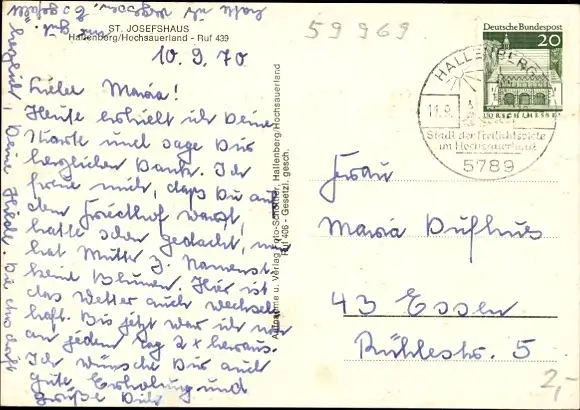 ST. JOSEFSHAUS
Hallenberg/Hochsauerland - Ruf 439
10. 9. 70
Lieber Maria!
Heute erhielt ich Deine
Karte und sage Dir
herzlichen Dank. Ich
freue mich, daß Du auf
dem Friedhof warst,
hatte schon gedacht, nun
hat Mutter z. Namenst.
keine Blumen. Hier ist
das Wetter auch wechsel-
haft. Bis jetzt war ich nur
an jedem Tag 2 x heraus.
Ich wünsche Dir auch
gute Erholung und
Grüße Dich
herzlich, Deine Hilde.
Aufnahme u. Verlag Foto-Schötler, Hallenberg/Hochsauerland
Ruf 406 - Gesetzl. gesch.
59969
Deutsche Bundespost
20
LORSCH/HESSEN
HALLENBERG
11.9.
Stadt der Freilichtspiele
im Hochsauerland
5789
Frau
Maria Dufhues
43 Essen
Rühlestr. 5
2,-